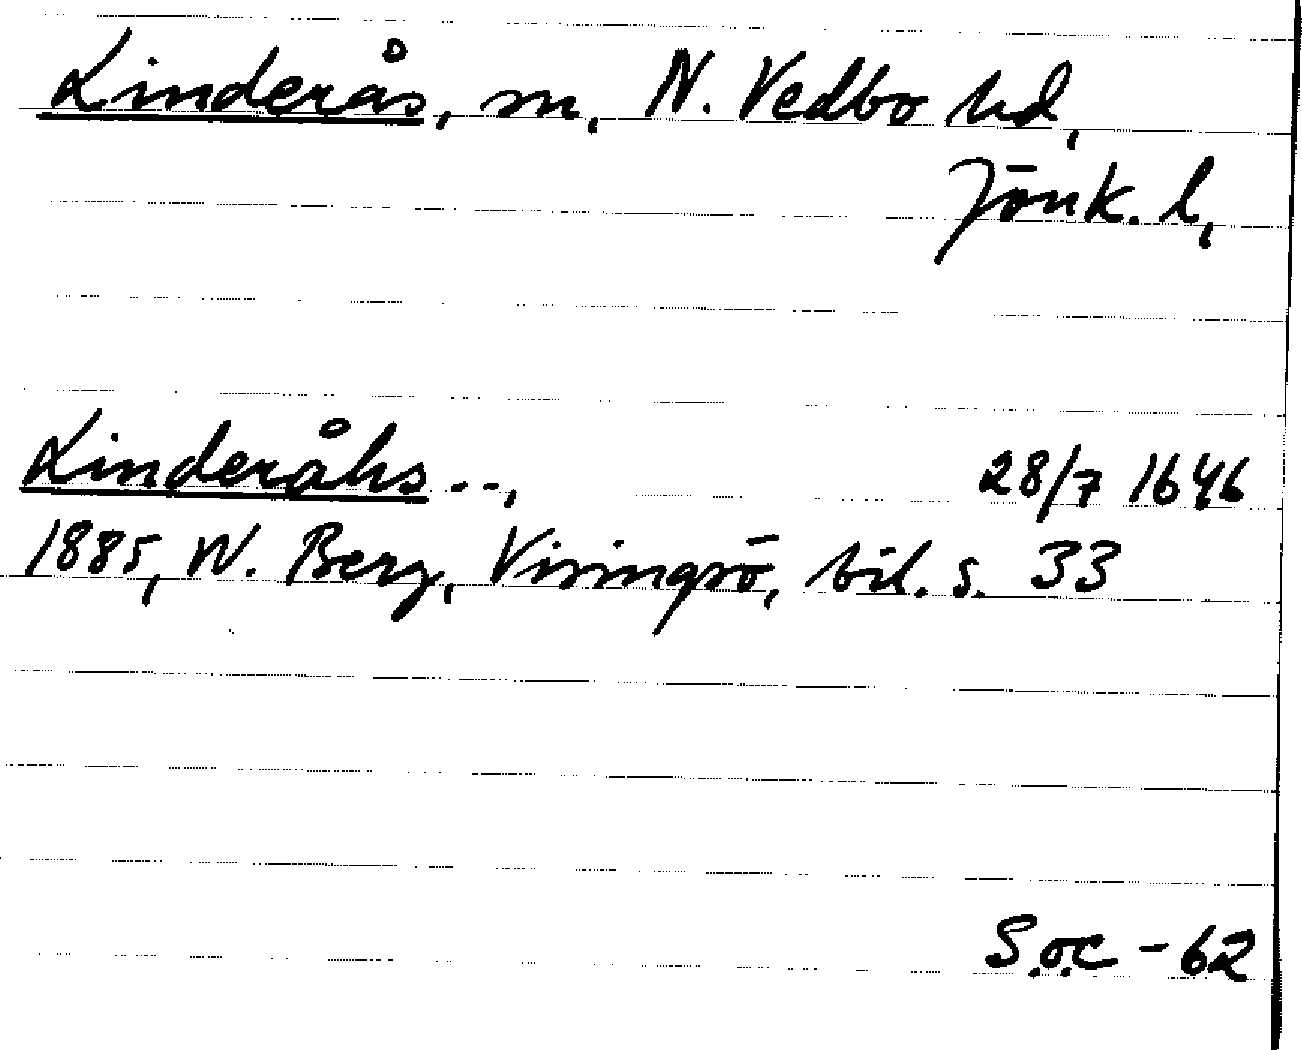 Linderås, sn, N. Vedbo hd,
Jönk. l,
Linderåhs --, 28/7 1646
1885, W. Berg, Visingsö, bil. s. 33
S.o.C -62